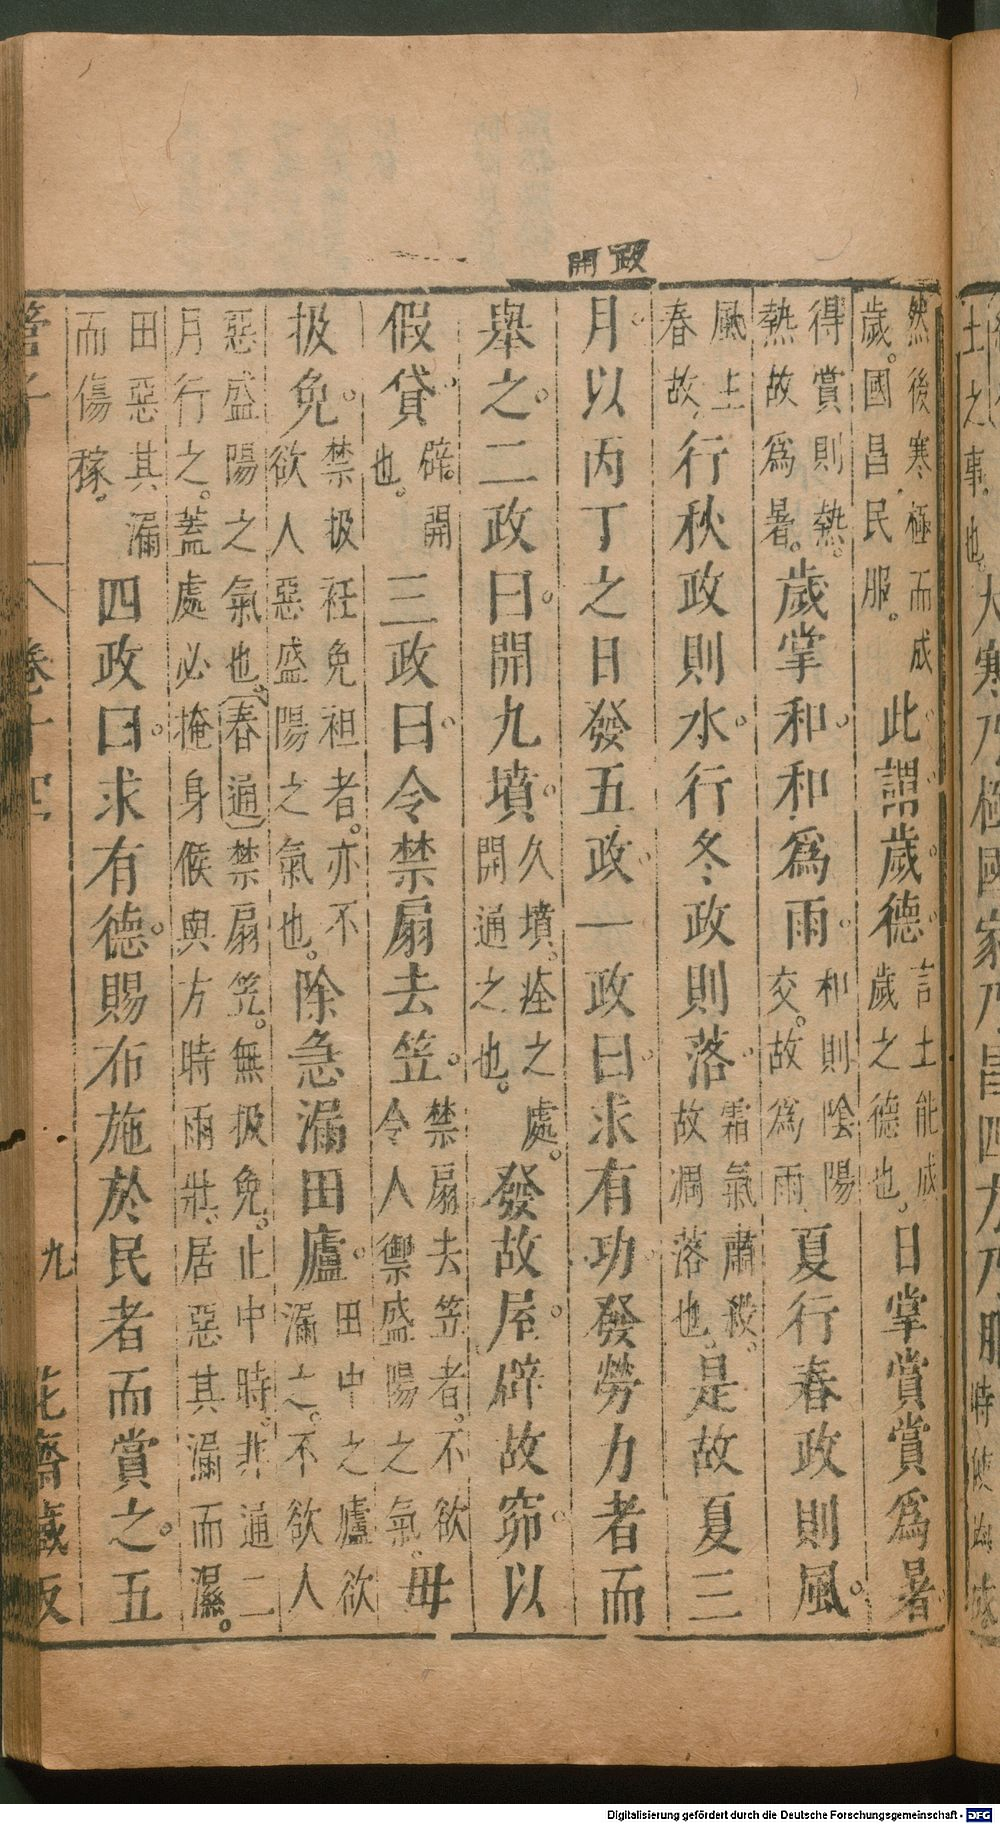 土之事也。大寒乃極國家乃昌四方乃服
開政
然後寒極而成
歲。國昌民服。
此謂歲德。
言土能成
歲之德也。
日掌賞賞爲暑
得賞則熱。
熱故爲暑。
歲掌和。和爲雨。
和則陰陽
交。故爲雨
夏行春政則風。
風上
春故
行秋政則水。行冬政則落。
霜氣肅殺。
故凋落也。
是故夏三
月。以丙丁之日發五政。一政曰。求有功。發勞力者而
舉之。二政曰。開九墳。
久墳。瘞之處。
開通之也。
發故屋。辟故窌。以
假貸。
辟。開
也。
三政曰。令禁扇去笠。
禁扇去笠者。不欲
令人禦盛陽之氣。
毋
扱免。
禁扱衽免袒者。亦不
欲人惡盛陽之氣也。
除急漏田廬。
田中之廬欲
漏之。不欲人
惡盛陽之氣也、〔春通〕禁扇笠。無扱免。止中時。非通二
月行之。蓋處必掩身候與方時雨壯。居惡其漏而濕。
田惡其漏
而傷稼。
四政曰。求有德。賜布施於民者而賞之。五
管子 卷十四 九 花齋藏版
Digitalisierung gefördert durch die Deutsche Forschungsgemeinschaft - DFG